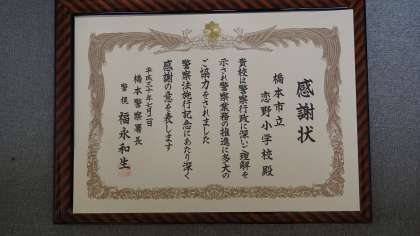 感謝状
橋本市立
恋野小学校殿
貴校は警察行政に深い理解を
示され警察業務の推進に多大の
ご協力をされました
警察法施行記念にあたり深く
感謝の意を表します
平成三十年七月二日
橋本警察署長
警視 福永和生